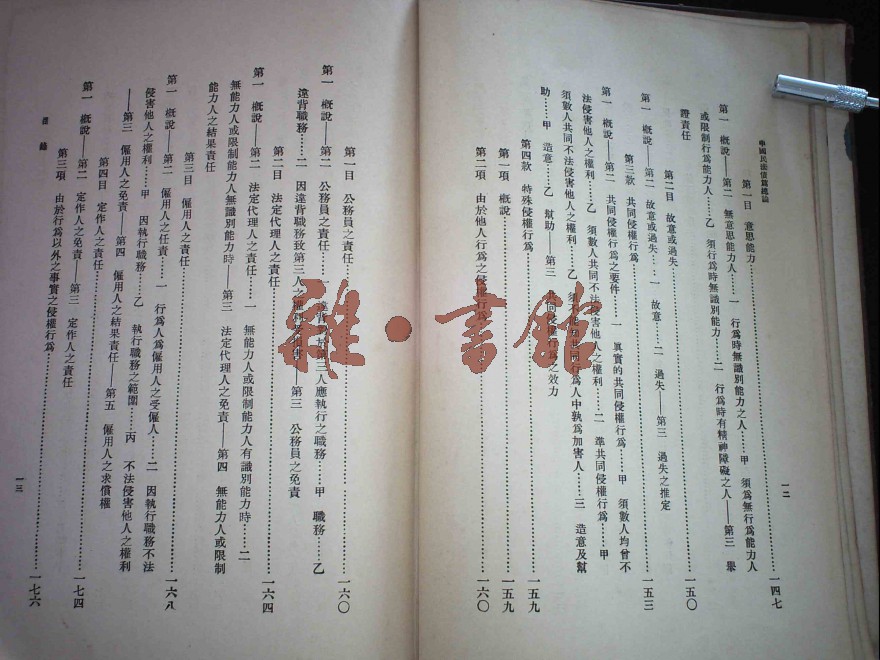 中國民法債篇總論
一二
第一目 意思能力……一四七
第一 概說——第二 無意思能力人……一 行爲時無識別能力之人……甲 須爲無行爲能力人
或限制行爲能力人……乙 須行爲時無識別能力……二 行爲時有精神障礙之人——第三 舉
證責任
第二目 故意或過失……一五〇
第一 概說——第二 故意或過失……一 故意……二 過失——第三 過失之推定
第三款 共同侵權行爲……一五三
第一 概說——第二 共同侵權行爲之要件……一 眞實的共同侵權行爲……甲 須數人均曾不
法侵害他人之權利……乙 須數人共同不法侵害他人之權利……二 準共同侵權行爲……甲
須數人共同不法侵害他人之權利……乙 須不能知共同行爲人中孰爲加害人……三 造意及幫
助……甲 造意……乙 幫助——第三 共同侵權行爲之效力
第四款 特殊侵權行爲……一五九
第一項 概說……一五九
第二項 由於他人行爲之侵權行爲……一六〇
第一目 公務員之責任……一六〇
第一 概說——第二 公務員之責任……違背對於第三人應執行之職務……甲 職務……乙
違背職務……二 因違背職務致第三人之權利受損害——第三 公務員之免責
第二目 法定代理人之責任……一六四
第一 概說——第二 法定代理人之責任……一 無能力人或限制能力人有識別能力時……二
無能力人或限制能力人無識別能力時——第三 法定代理人之免責——第四 無能力人或限制
能力人之結果責任
第三目 僱用人之責任……一六八
第一 概說——第二 僱用人之任責……一 行爲人爲僱用人之受僱人……二 因執行職務不法
侵害他人之權利……甲 因執行職務……乙 執行職務之範圍……丙 不法侵害他人之權利
——第三 僱用人之免責——第四 僱用人之結果責任——第五 僱用人之求償權
第四目 定作人之責任……一七四
第一 概說——第二 定作人之免責——第三 定作人之責任
第三項 由於行爲以外之事實之侵權行爲……一七六
目錄
一三
雜·書館